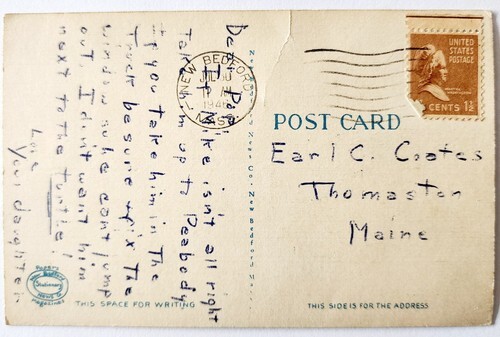 Dear Dad,
If Mike isn't all right
Take him up to Peabody
If you take him in The
Truck besure + fix The
window so he can't jump
out. I didn't want him
next to the turtle!
Love
Your daughter
NEW BEDFORD
MASS.
News Co. New Bedford, Mass.
UNITED
STATES
POSTAGE
CENTS 1½
POST CARD
Earl C. Coates
Thomaston
Maine
Stationery
THIS SPACE FOR WRITING
THIS SIDE IS FOR THE ADDRESS